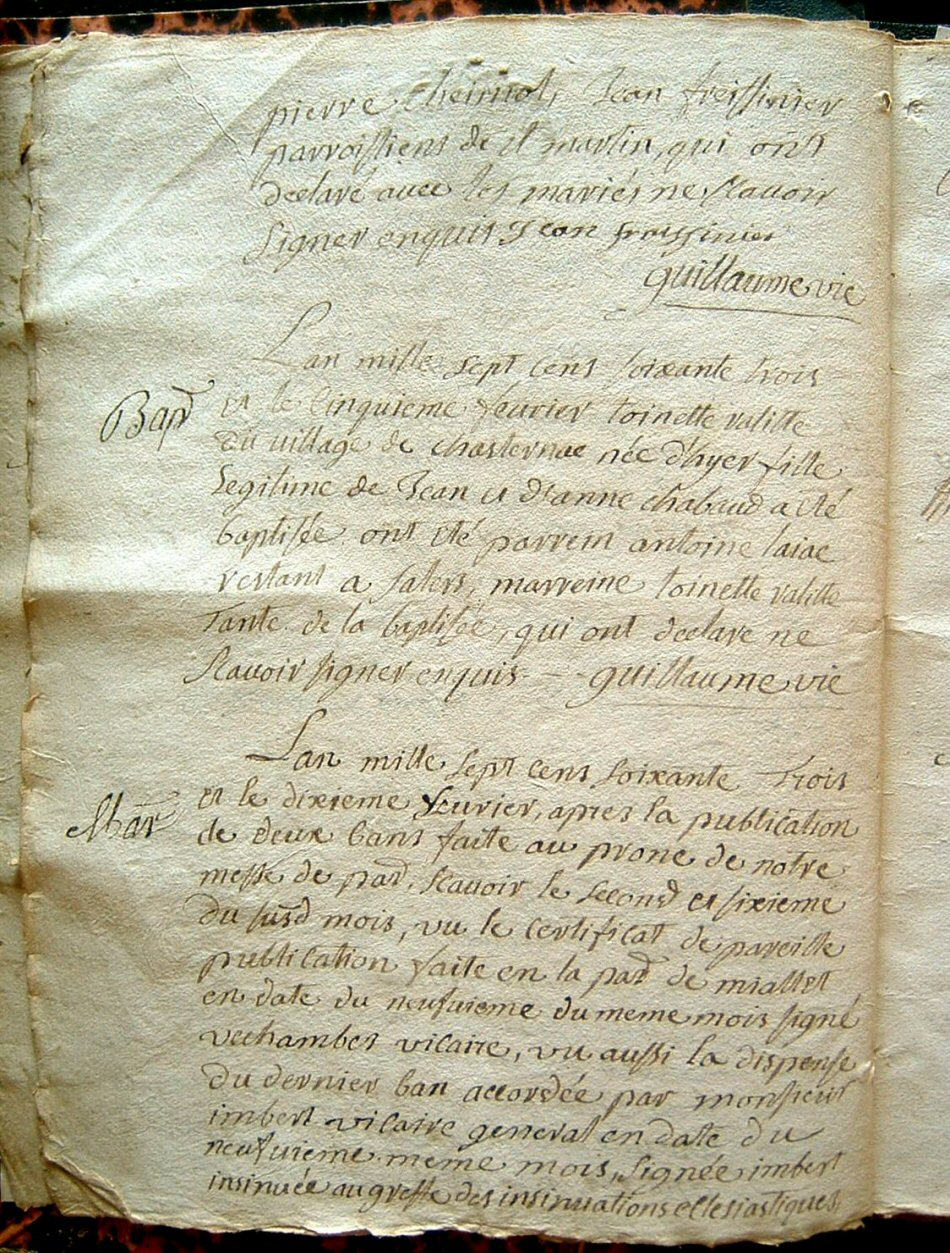 pierre Cheimol, Jean freissinier
parroissiens de st martin, qui ont
declaré avec les mariés ne scavoir
signer enquis Jean froissinier
guillaume vie
Lan mille sept cens soixante trois
Bapt
et le cinquieme fevrier toinette valitte
du village de chasternac née d'hyer fille
legitime de Jean et d'anne chabaud a été
baptisée ont été parrein antoine laiac
restant a salers, marreine toinette valitte
Tante de la baptisée, qui ont declare ne
scavoir signer enquis — guillaume vie
Lan mille sept cens soixante Trois
Mar
et le dixieme fevrier, apres la publication
de deux bans faite au prone de notre
messe de par, scavoir le second et sixieme
du susd mois, vu le certificat de pareille
publication faite en la par de miallet
en date du neufvieme du meme mois signé
vechambes vicaire, vu aussi la dispense
du dernier ban accordée par monsieur
imbert vicaire general en date du
neufvieme meme mois, signée imbert
insinuée au greffe des insinuations ecclesiastiques,